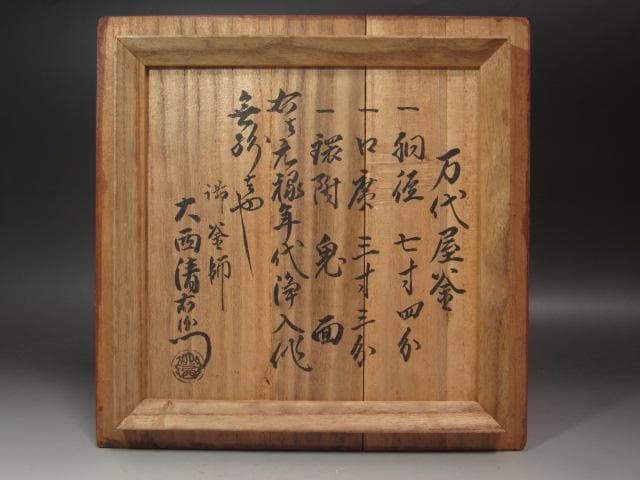 万代屋釜
一 胴径 七寸四分
一 口広 三寸三分
一 鐶附 鬼面
右者元禄年代浄入作
無紛者也
御釜師
大西清右衛門